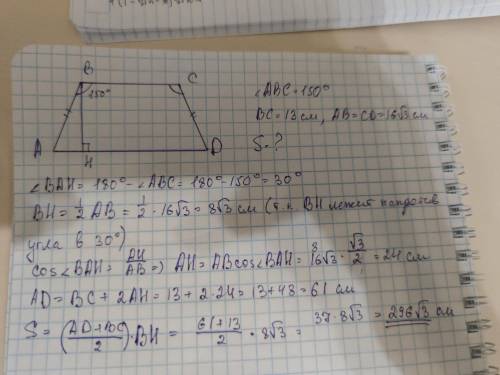 B C
150°
A H D
∠ABC = 150°
BC = 13 см, AB = CD = 16√3 см
S - ?
∠BAH = 180° - ∠ABC = 180° - 150° = 30°
BH = 1/2 AB = 1/2 · 16√3 = 8√3 см (т.к. BH лежит напротив
угла в 30°)
cos∠BAH = AH/AB => AH = AB cos∠BAH = 16√3 · √3/2 = 24 см
8
AD = BC + 2AH = 13 + 2·24 = 13 + 48 = 61 см
S = (AD+BC/2) · BH = 61+13/2 · 8√3 = 37 · 8√3 = 296√3 см